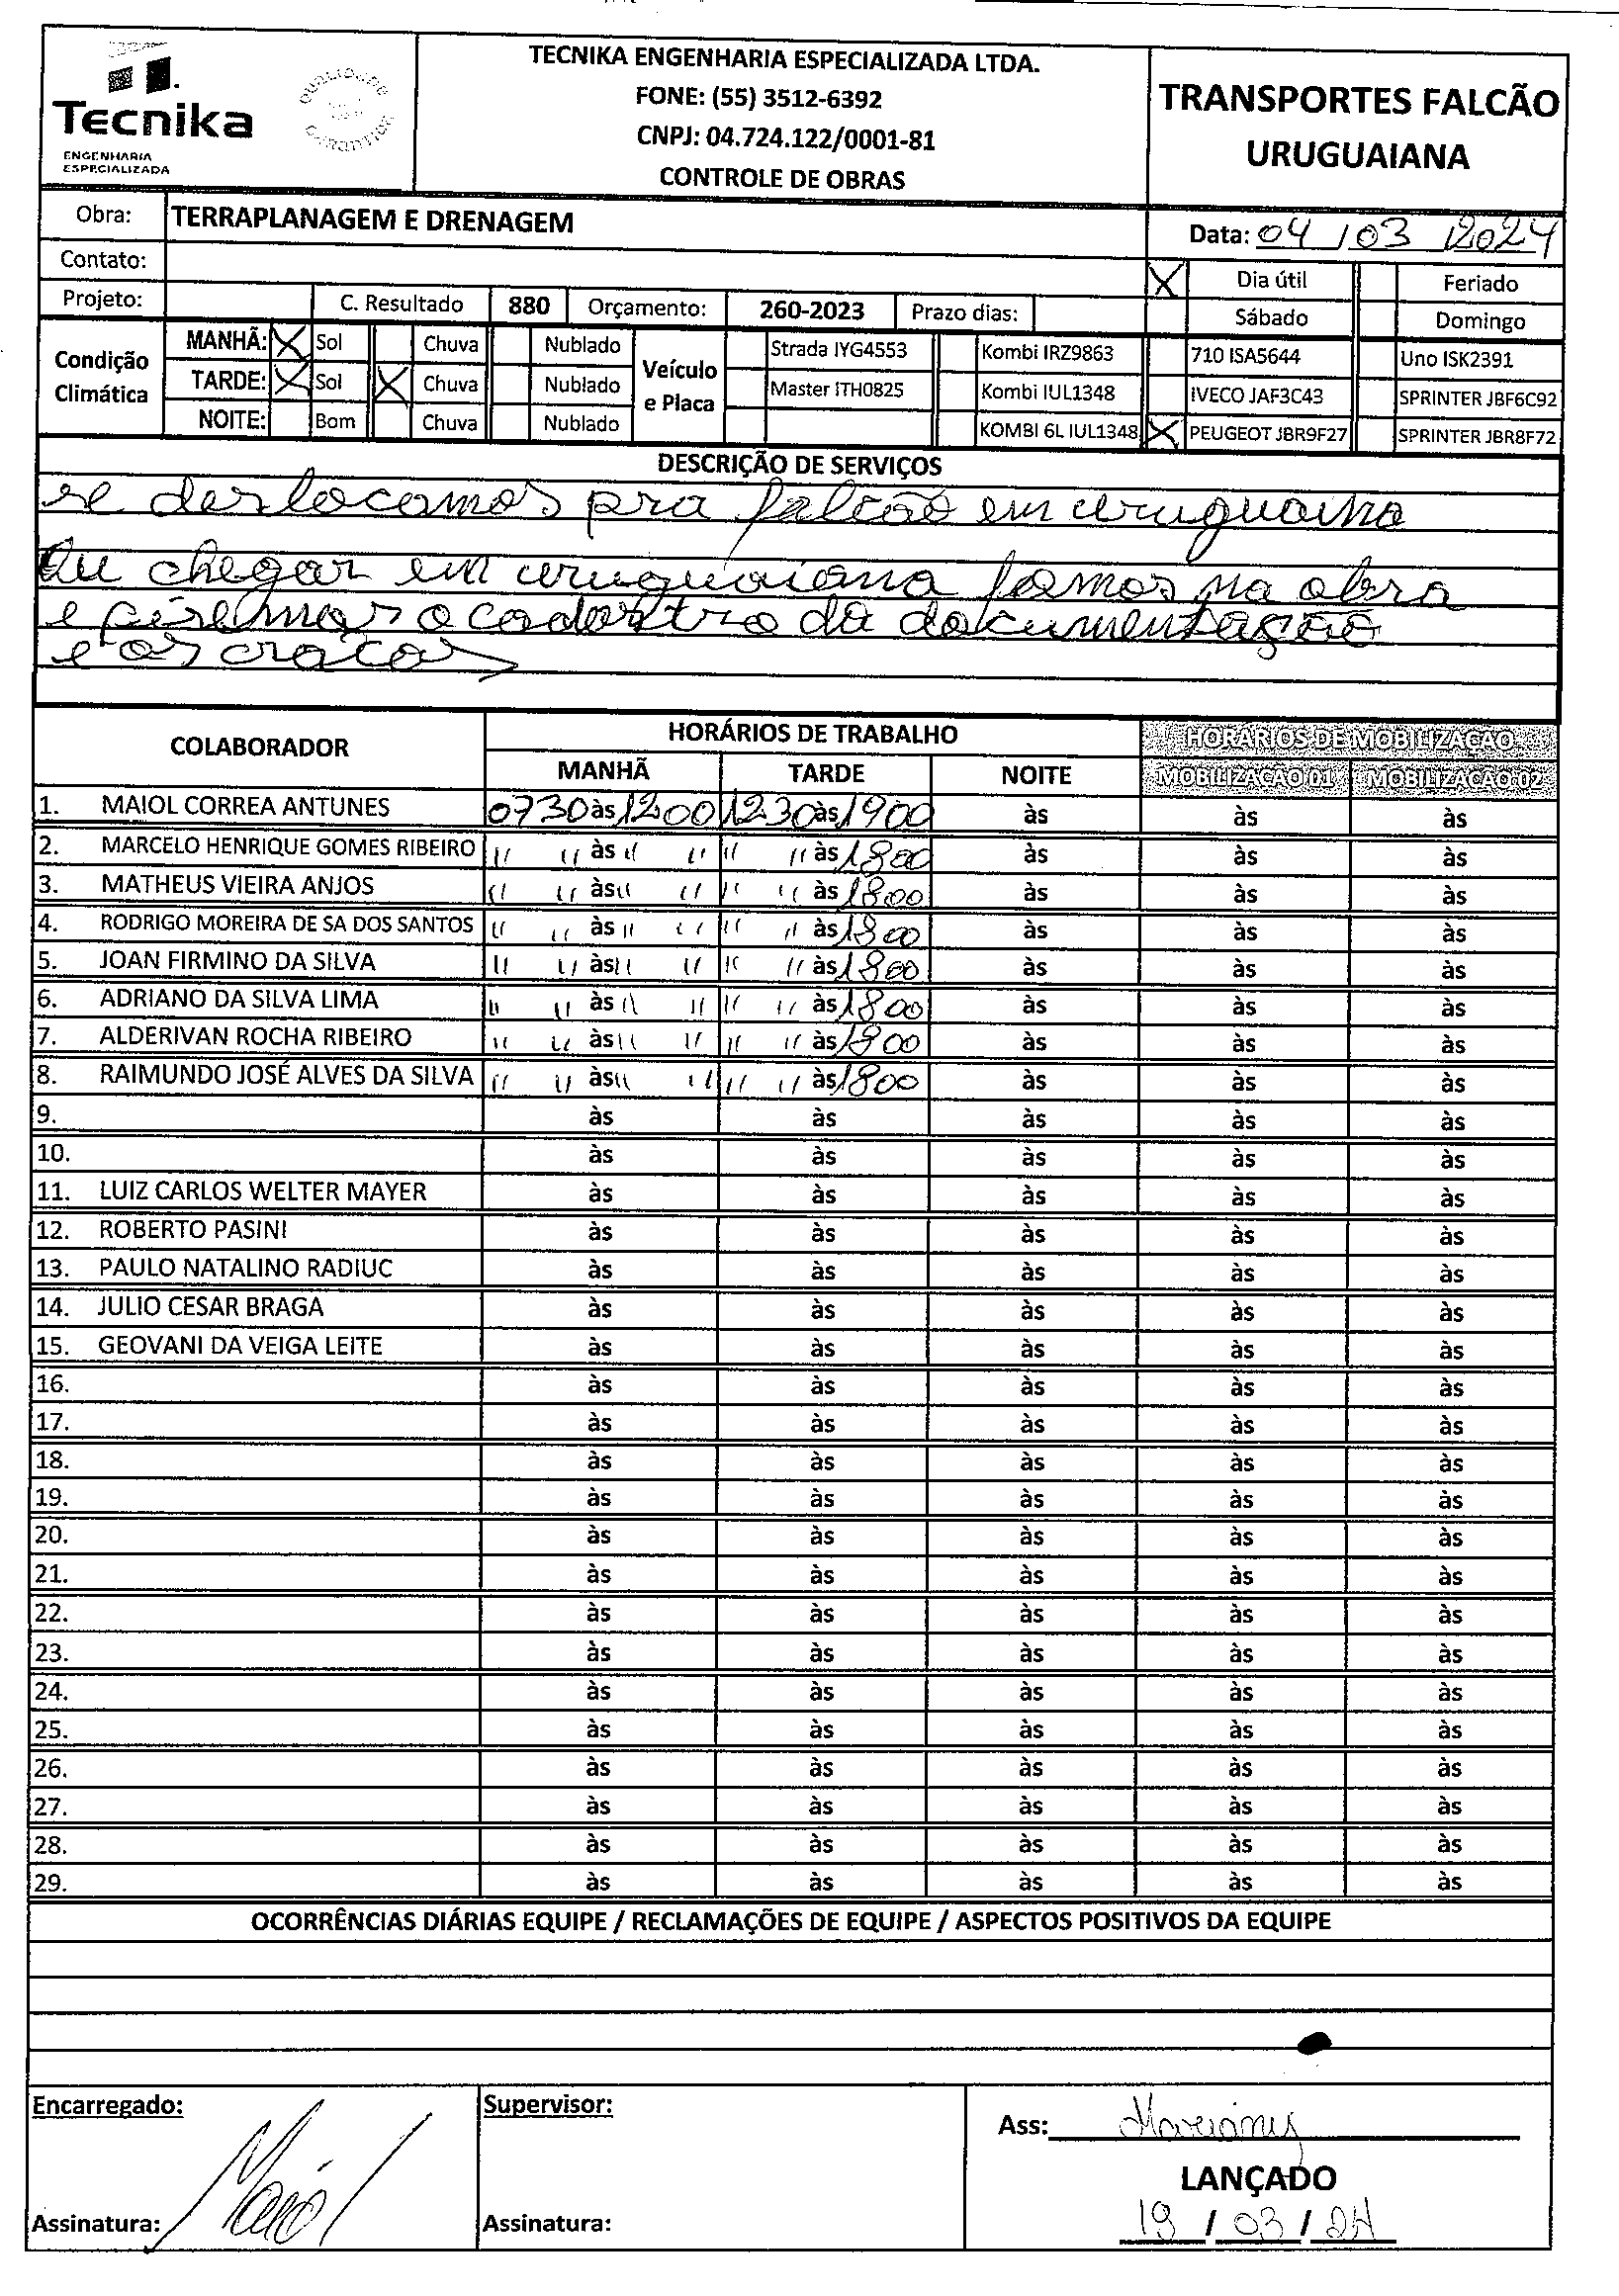 Tecnika
ENGENHARIA
ESPECIALIZADA
TECNIKA ENGENHARIA ESPECIALIZADA LTDA.
FONE: (55) 3512-6392
CNPJ: 04.724.122/0001-81
CONTROLE DE OBRAS
TRANSPORTES FALCÃO
URUGUAIANA
Obra: TERRAPLANAGEM E DRENAGEM
Data: 04 / 03 / 2024
Contato:
X Dia útil Feriado
Projeto: C. Resultado 880 Orçamento: 260-2023 Prazo dias:
Sábado Domingo
Condição Climática
MANHÃ: X Sol Chuva Nublado
TARDE: X Sol X Chuva Nublado
NOITE: Bom Chuva Nublado
Veículo e Placa
Strada IYG4553 Kombi IRZ9863 710 ISA5644 Uno ISK2391
Master ITH0825 Kombi IUL1348 IVECO JAF3C43 SPRINTER JBF6C92
KOMBI 6L IUL1348 X PEUGEOT JBR9F27 SPRINTER JBR8F72
DESCRIÇÃO DE SERVIÇOS
se deslocamos pra falcão em uruguaina
Au chegar em uruguaiana fomos na obra
e o cadastro da documentação
e os cracas
COLABORADOR HORÁRIOS DE TRABALHO HORÁRIOS DE MOBILIZAÇÃO
MANHÃ TARDE NOITE MOBILIZAÇÃO 01 MOBILIZAÇÃO 02
1. MAIOL CORREA ANTUNES 0730 às 1200 1230 às 1900 às às às
2. MARCELO HENRIQUE GOMES RIBEIRO " " às " " " " às 1800 às às às
3. MATHEUS VIEIRA ANJOS " " às " " " " às 1800 às às às
4. RODRIGO MOREIRA DE SA DOS SANTOS " " às " " " " às 1800 às às às
5. JOAN FIRMINO DA SILVA " " às " " " " às 1800 às às às
6. ADRIANO DA SILVA LIMA " " às " " " " às 1800 às às às
7. ALDERIVAN ROCHA RIBEIRO " " às " " " " às 1800 às às às
8. RAIMUNDO JOSÉ ALVES DA SILVA " " às " " " " às 1800 às às às
9. às às às às às
10. às às às às às
11. LUIZ CARLOS WELTER MAYER às às às às às
12. ROBERTO PASINI às às às às às
13. PAULO NATALINO RADIUC às às às às às
14. JULIO CESAR BRAGA às às às às às
15. GEOVANI DA VEIGA LEITE às às às às às
16. às às às às às
17. às às às às às
18. às às às às às
19. às às às às às
20. às às às às às
21. às às às às às
22. às às às às às
23. às às às às às
24. às às às às às
25. às às às às às
26. às às às às às
27. às às às às às
28. às às às às às
29. às às às às às
OCORRÊNCIAS DIÁRIAS EQUIPE / RECLAMAÇÕES DE EQUIPE / ASPECTOS POSITIVOS DA EQUIPE
Encarregado: Supervisor:
Ass:
LANÇADO
Assinatura: Maiol Assinatura:
19 / 03 / 24